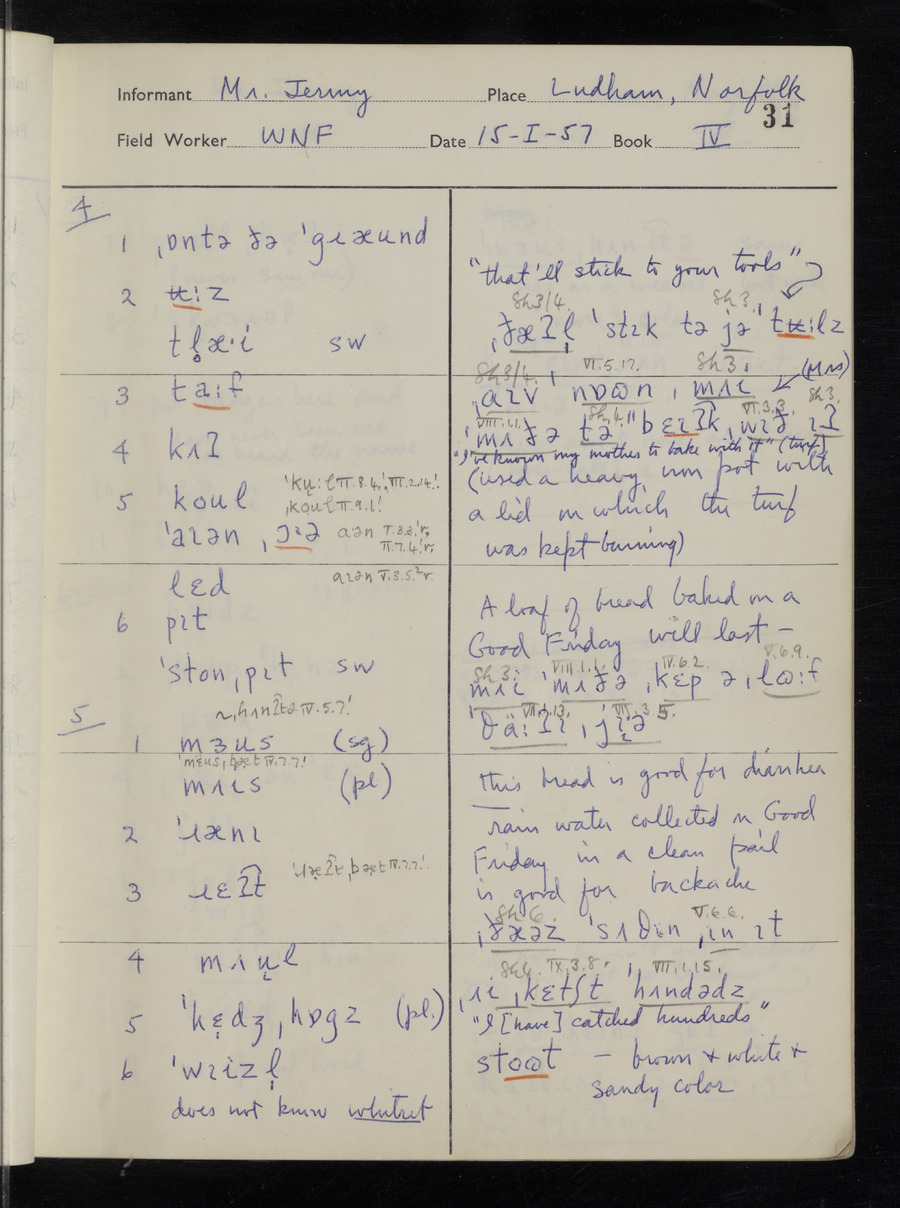 Informant Mr. Jermy Place Ludham, Norfolk
31
Field Worker WNF Date 15-I-57 Book IV
4
1 ˌɒntə ðə ˈgɹæund
2 ʉ:z
tl̥æ·i sw
3 ta:f
4
5 koul ˈkʉ:l II.8.4,! VII.2.14.!
ˌkoul II.9.1!
ˈaɪən aən I.3.2.!r.
II.7.4!r.
aɪən V.3.5.²r.
lɛd
6 pɪt
ˈstonˌpɪt sw
5
IV.5.7!
1 mɜus (sg)
IV.7.7!
mʌɪs (pl)
2 ˈɹænɪ
3 IV.7.7!
4
5 ˈhɛdʒˌhɒgz (pl.)
6 ˈwɪizl̩
does not know whitret
"that'll stick to your tools"
Sh 3/4. Sh 3.
ˈstɪk tə jə ˈtʉ:lz
Sh 3/4. VI.5.17. Sh 3. (Mrs)
ˌaɪv nɒʊn ˌmʌɪ
VIII.1.1. Sh.4. VI.3.3. Sh 3.
ˈmʌðə tə
"I've known my mother to bake with it" (turf)
(used a heavy iron pot with
a lid on which the turf
was kept burning)
A loaf of bread baked on a
Good Friday will last –
Sh 3. VIII.1.1. IV.6.2. V.6.9.
mʌɪ ˈmʌðə ˌkɛp ə ˌlʊ:f
VII.1.13. VII.3.5.
this bread is good for diarrhea
rain water collected on Good
Friday in a clean pail
is good for backache
Sh 6. V.6.6.
ˌðæəz ˈsʌθɪn ˌɪn ɪt
Sh 4. IX.3.8. VII.1.15.
ˌkɛtʃt hʌndədz
"I [have] catched hundreds"
stoʊt – brown + white +
sandy color